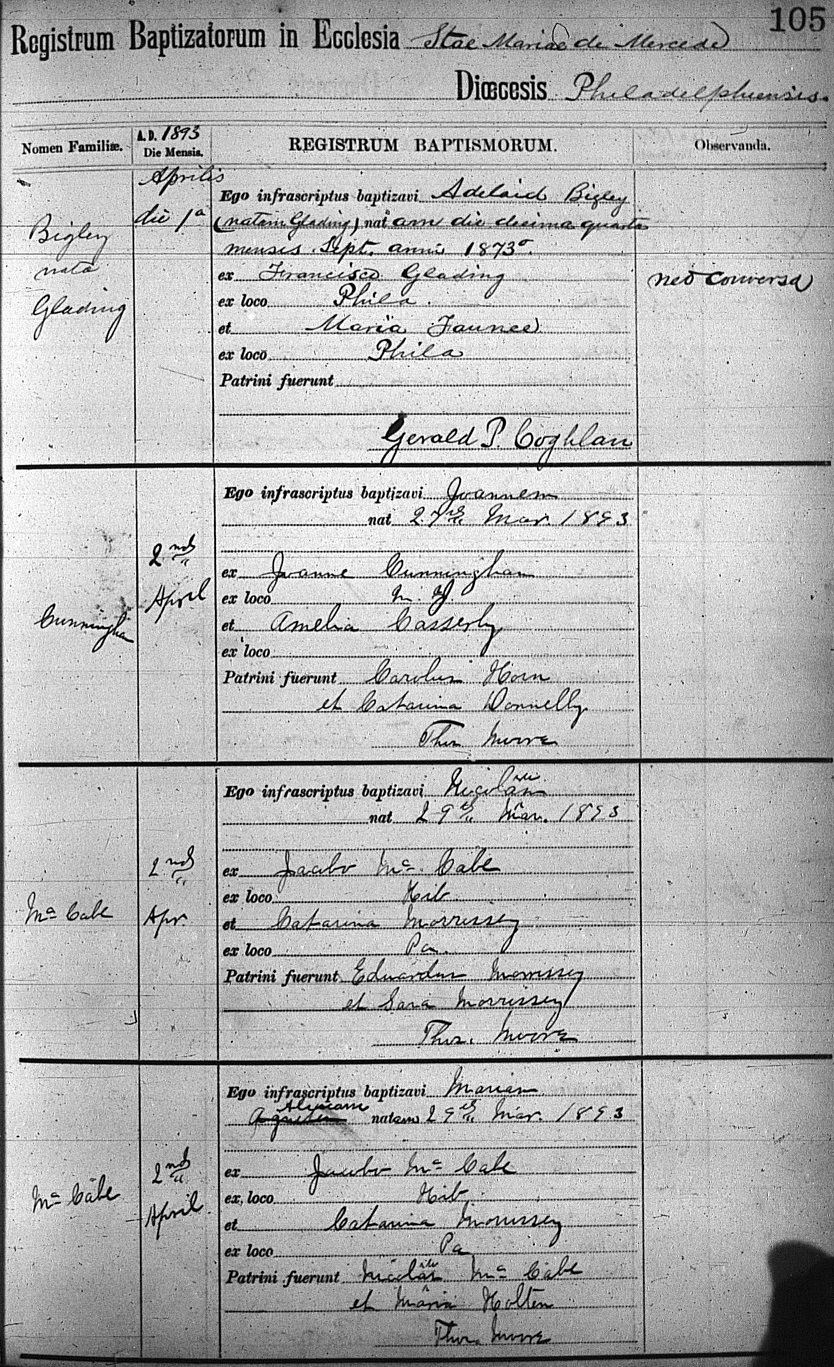 105
Registrum Baptizatorum in Ecclesia Stae Mariae de Mercede
Diœcesis Philadelphiensis.
Nomen Familiæ.
A.D. 1893
Die Mensis.
REGISTRUM BAPTISMORUM.
Observanda.
Aprilis
die 1a
Bigley
nata
Glading
Ego infrascriptus baptizavi Adelaid Bigley
(natam Glading) nat am die decima quarta
mensis Sept. anni 1873
ex Francisco Glading
ex loco Phila.
et Maria Faunce
ex loco Phila
Patrini fuerunt
Gerald P. Coghlan
neo conversa
Cunningham
2nd
April
Ego infrascriptus baptizavi Joannem
nat 27th Mar. 1893
ex Joanne Cunningham
ex loco
et Amelia Casserly
ex loco
Patrini fuerunt Carolus Horn
et Catarina Donnelly
Thos. Moore
Mc Cabe
2nd
Apr.
Ego infrascriptus baptizavi
nat 29th Mar. 1893
ex Jacobo Mc Cabe
ex loco Hib.
et Catarina Morrissey
ex loco Pa.
Patrini fuerunt Eduardus Morrissey
et Sara Morrissey
Thos. Moore
Mc Cabe
2nd
April
Ego infrascriptus baptizavi Mariam
natam 29th Mar. 1893
ex Jacobo Mc Cabe
ex loco Hib.
et Catarina Morrissey
ex loco Pa
Patrini fuerunt Mc Cabe
et Maria Holten
Thos. Moore